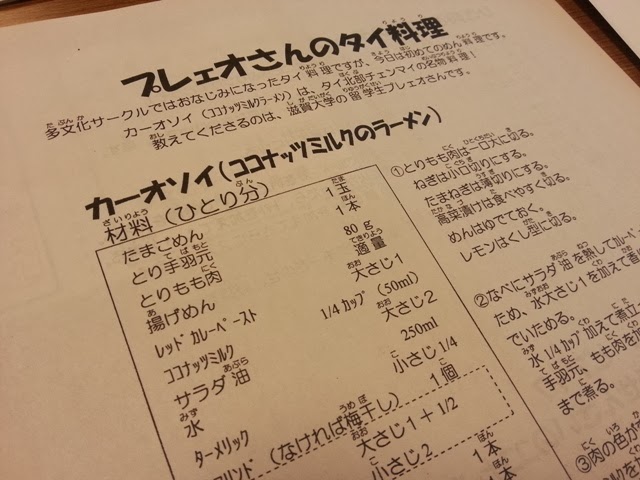 プレェオさんのタイ料理
多文化サークルではおなじみになったタイ料理ですが、今日は初めてのめん料理です。
カーオソイ(ココナッツミルクラーメン)は、タイ北部チェンマイの名物料理!
教えてくださるのは、滋賀大学の留学生プレェオさんです。
カーオソイ(ココナッツミルクのラーメン)
材料(ひとり分)
たまごめん 1玉
とり手羽元 1本
とりもも肉 80g
揚げめん 適量
レッドカレーペースト 大さじ1
ココナッツミルク 1/4カップ(50ml)
サラダ油 大さじ2
水 250ml
ターメリック 小さじ1/4
(なければ梅干し) 1個
大さじ1+1/2
小さじ2
1本
①とりもも肉は一口大に切る。
ねぎは小口切りにする。
たまねぎは薄切りにする。
高菜漬けは食べやすく切る。
めんはゆでておく。
レモンはくし型に切る。
②なべにサラダ油を熱してカレー
ため、水大さじ1を加えて香
でいためる。
水1/4カップ加えて煮立
手羽元、もも肉を加
まで煮る。
③肉の色が